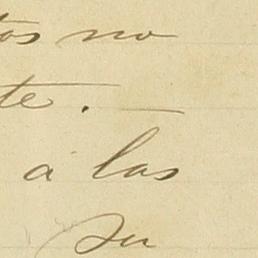 tos no
te. —
á las
su